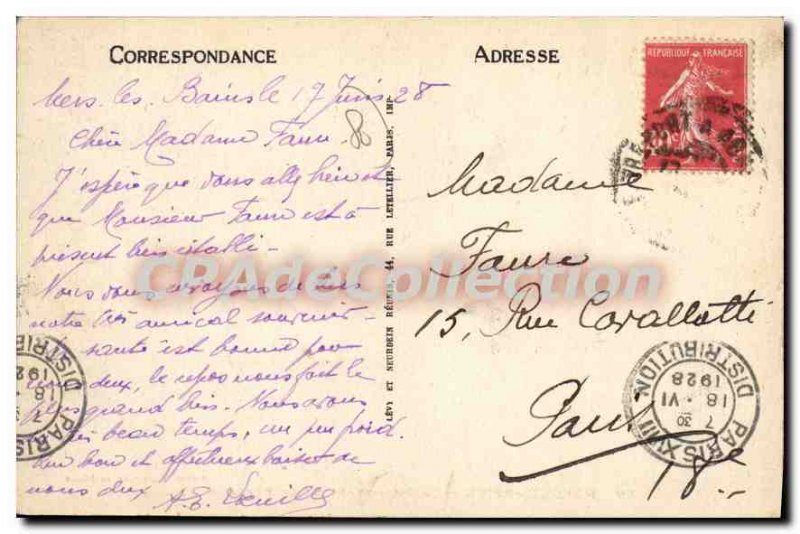 CORRESPONDANCE
Mers-les-Bains le 17 Juin 28
Chère Madame Faure.
J'espère que vous allez bien et
que Monsieur Faure est à
présent bien établi.
Nous vous envoyons de Mers
notre très amical souvenir
santé est bonne pour
nous deux, le repos nous fait le
plus grand bien. Nous avons
beau temps, un peu froid.
Un bon et affectueux baiser de
nous deux
LÉVY ET NEURDEIN RÉUNIS, 44, RUE LETELLIER, PARIS, IMP.
ADRESSE
REPUBLIQUE FRANÇAISE
Madame
Faure
15, Rue Cavallotti
Paris
18e
PARIS XVIII
7 30
18 · VI
1928
DISTRIBUTION
PARIS
7
18
192
DISTRIB
CPAdeCollection